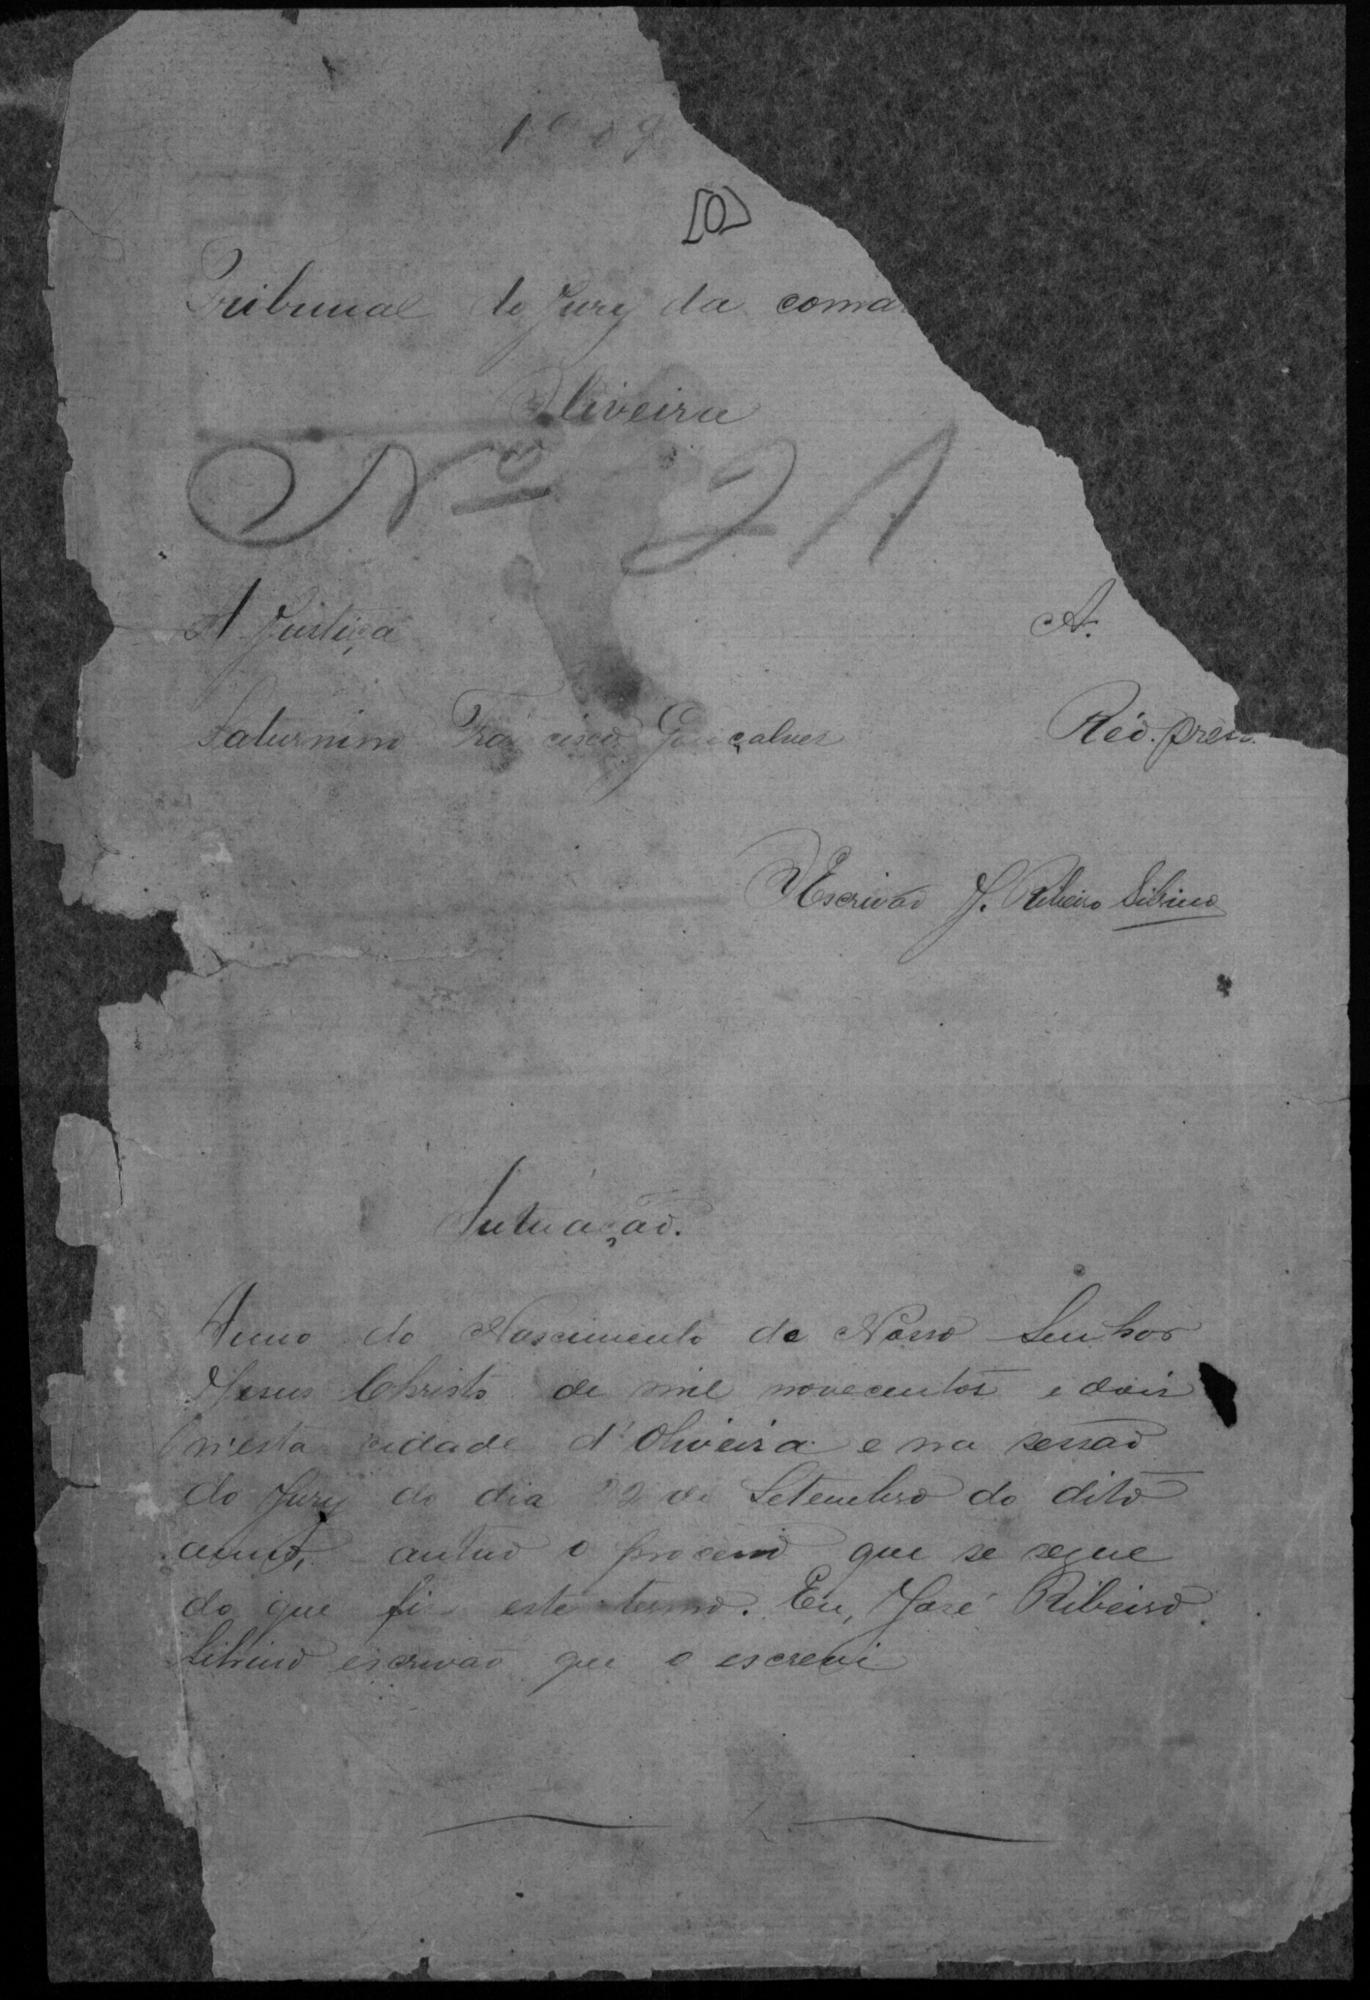 1909
[0]
Tribunal do Jury da coma
Oliveira
Nº 21
A Justiça A.
Saturnino Francisco Gonçalves Réo. preso
Escrivão J. Ribeiro Silvino
Autuação.
Anno do Nascimento de Nosso Senhor
Jesus Christo de mil novecentos e dois
n'esta cidade d'Oliveira e na sessão
do Jury do dia 22 de Setembro do dito
anno, autuo o processo que se segue
do que fiz este termo. Eu, José Ribeiro
Silvino escrivão que o escrevi